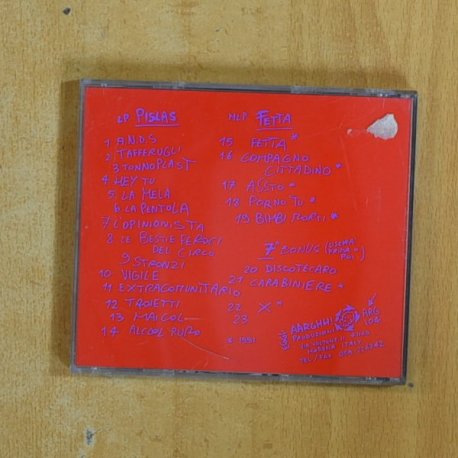 LP. PISLAS
1 A.N.D.S
2 TAFFERUGLI
3 TONNOPLAST
4 HEY TU
5 LA MELA
6 LA PENTOLA
7 L'OPINIONISTA
8 LE BESTIE FEROCI
DEL CIRCO
9 STRONZI
10 VIGILE
11 EXTRACOMUNITARIO
12 TROIETTI
13 MAICOL
14 ALCOOL PURO
MLP. FETTA
15 FETTA *
16 COMPAGNO
CITTADINO *
17 *
18 PORNO TU *
19 BIMBI MORTI *
7" BONUS
20 DISCOTECARO
21 CARABINIERE *
22 X *
23
AARGHH!
PRODUZIONI
ARG
04
MODENA ITALY
TEL/FAX